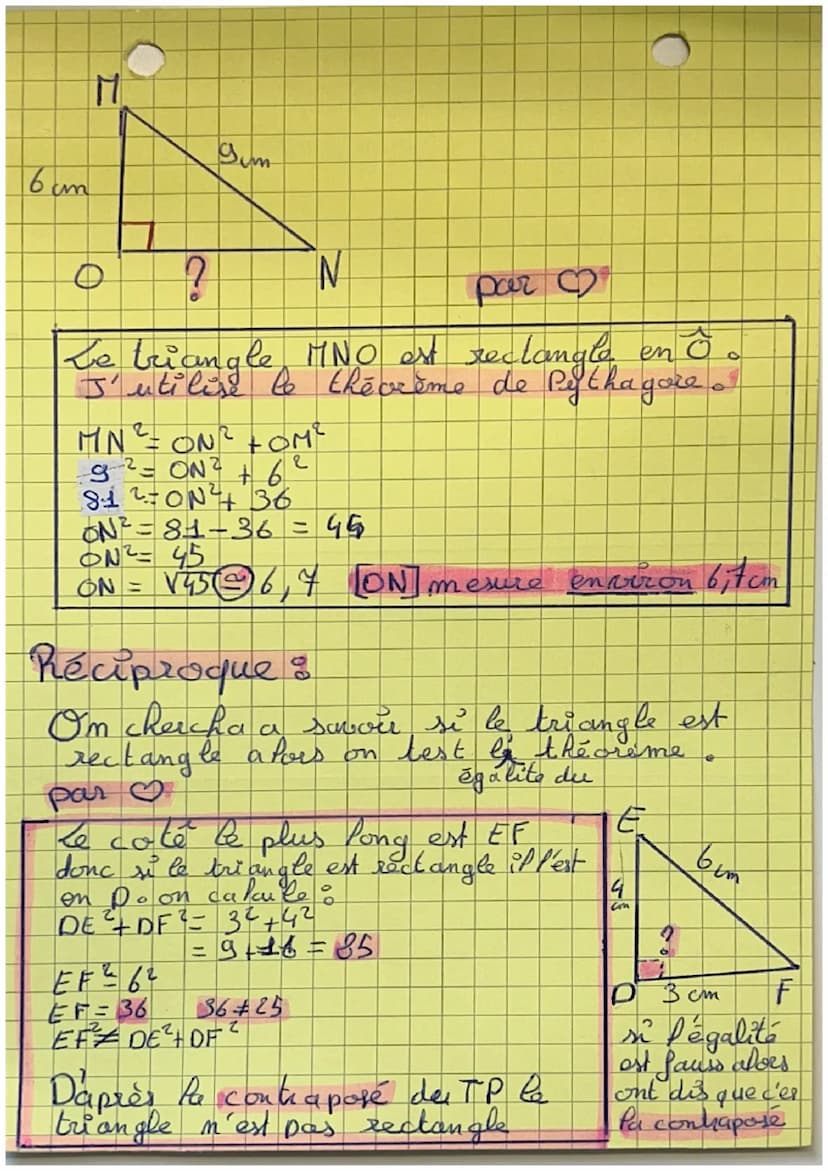 M
9cm
6 cm
O
?
N
par ♡
Le triangle MNO est rectangle en Ô.
J'utilise le théorème de Pythagore.
MN² = ON² + OM²
9² = ON² + 6²
81² = ON² + 36
ON² = 81 - 36 = 45
ON² = 45
ON = √45 ≃ 6,7 [ON] mesure environ 6,7cm
Réciproque :
On cherche a savoir si le triangle est
rectangle alors on test le théorème.
égalité du
par ♡
Le coté le plus long est EF
donc si le triangle est rectangle il l'est
en D. on calcule :
DE² + DF² = 3² + 4²
= 9 + 16 = 25
EF² = 6²
EF = 36 36 ≠ 25
EF² ≠ DE² + DF²
D'après la contraposé du TP le
triangle n'est pas rectangle
E
6cm
4
cm
?
D 3 cm F
si l'égalité
est fauss alors
ont dis que c'es
la contraposé